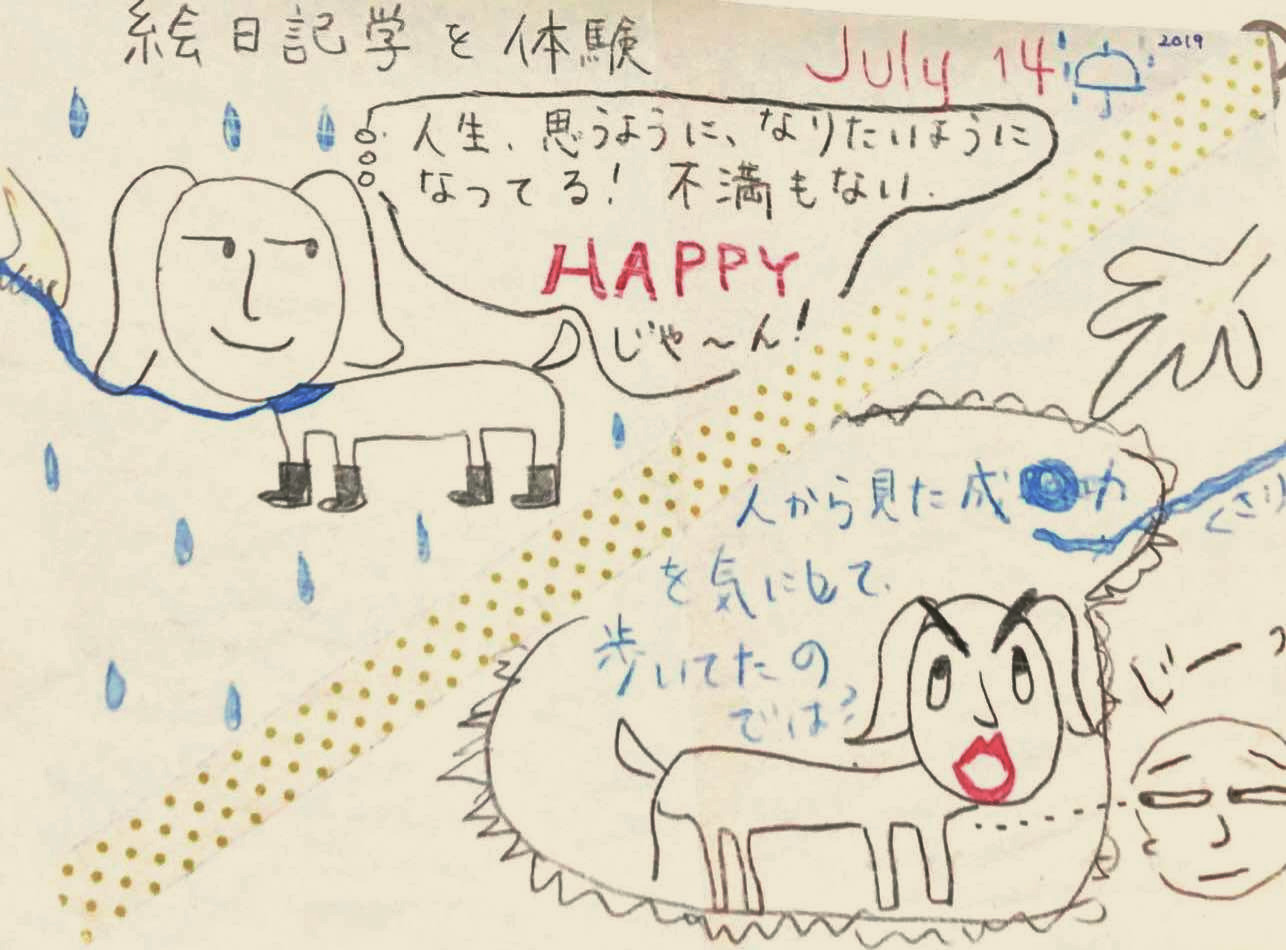 絵日記学を体験
July 14
2019
人生、思うように、なりたいように
なってる! 不満もない.
HAPPY
じゃ〜ん!
人から見た成功
を気にして、
歩いてたの
では?
くさり
じーっ